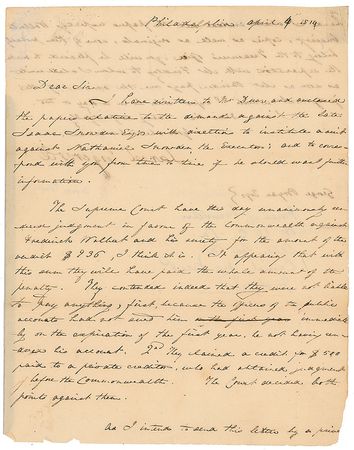 Philadelphia April 4 1814
Dear Sir
I have written to Mr Duer and enclosed
the papers relative to the demands against the late
Isaac Snowden Esqr with direction to institute a suit
against Nathaniel Snowden the Executor; and to corres-
pond with you from time to time if he should want further
information.
The Supreme Court have this day unanimously ren-
dered judgment in favour of the Commonwealth against
Frederick and his surety for the amount of the
verdict $936, I think it is. It appearing that with
this sum they will have paid the whole amount of the
penalty. They contended indeed that they were not liable
to pay anything, first, because the officers of the public
accounts had not sued him immediate
ly on the expiration of the first year, he not having ren-
dered his account. 2nd They claimed a credit for $500
paid to a private creditor, who had obtained judgment
before the Commonwealth. The Court decided both
points against them.
As I intend to send this letter by a private